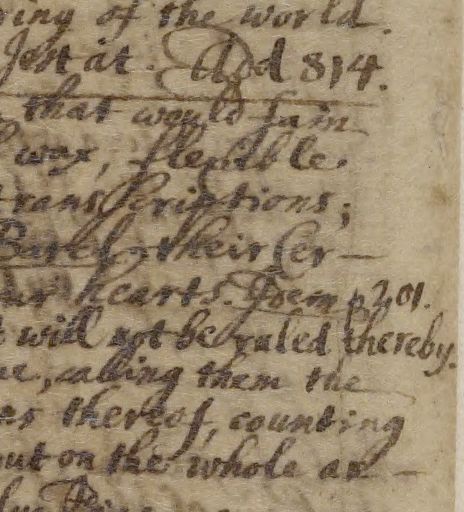 ring of the world.
Jest at. Add 814.
that would fain
wax, flexible
transscriptions;
their Cer-
our hearts. Idem p 201.
will not be ruled thereby.
, calling them the
thereof, counting
out on the whole ar-